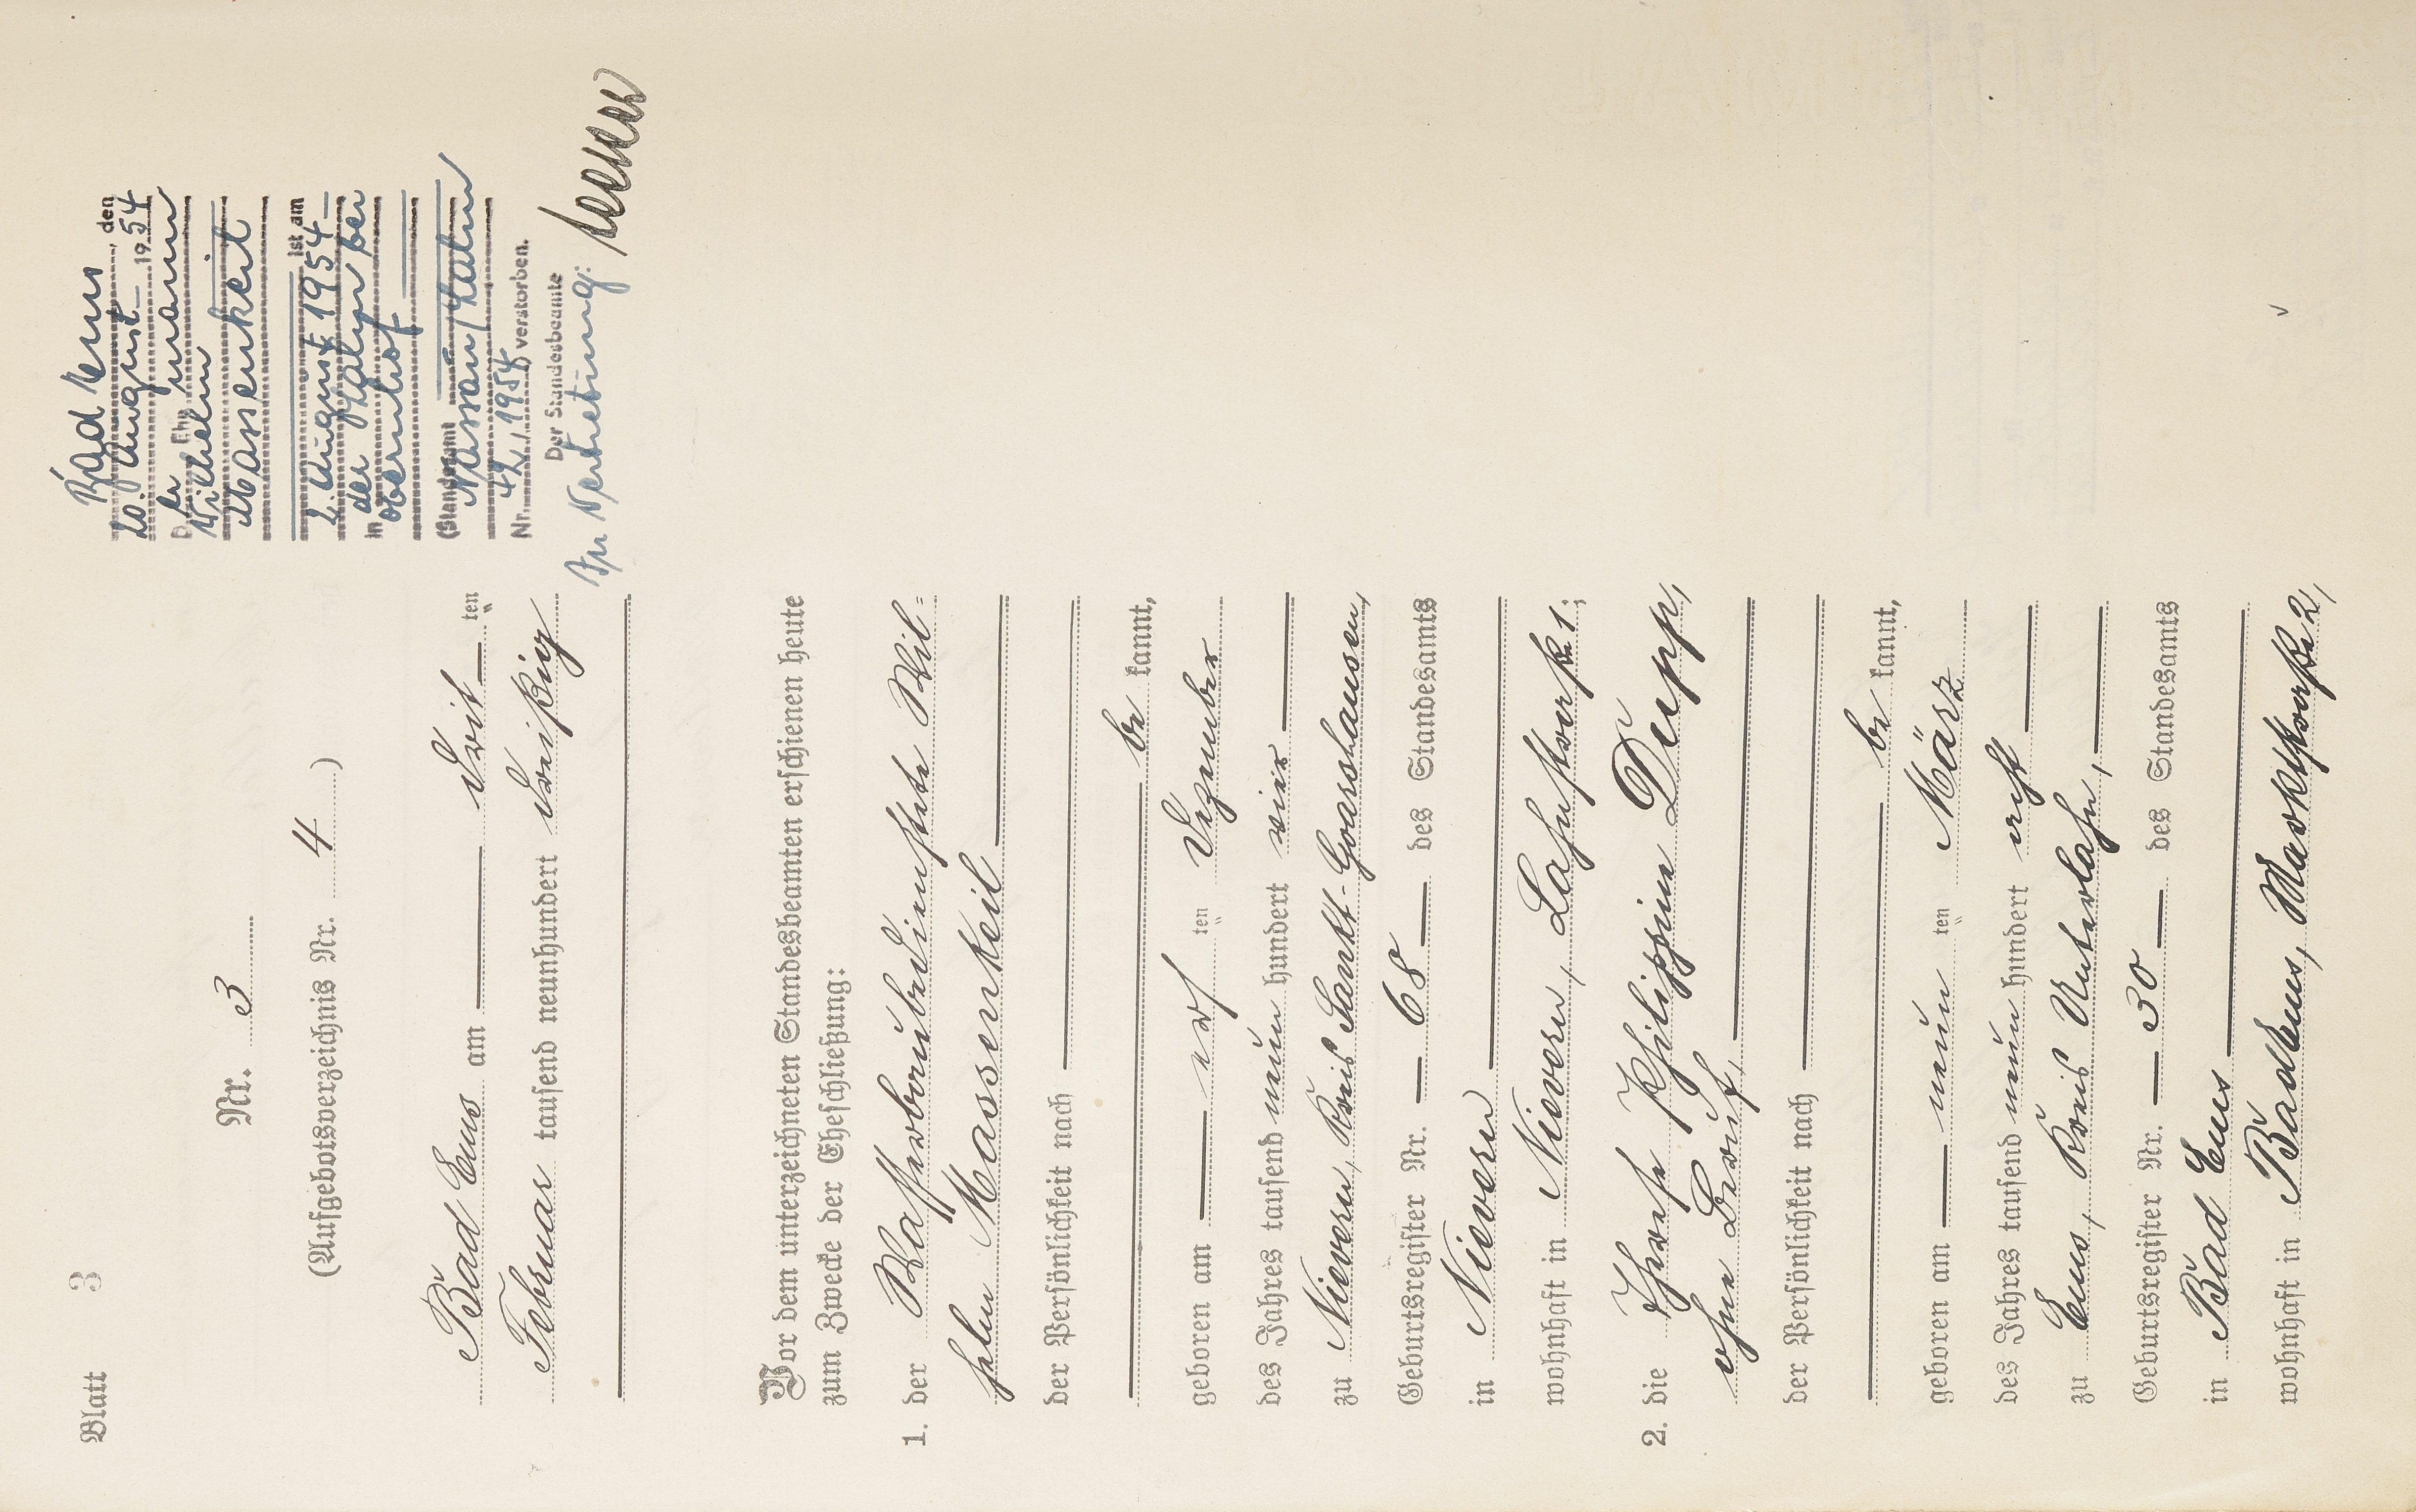 Blatt 3
Nr. 3
(Aufgebotsverzeichnis Nr. 4)
Bad Ems am drit ten
Februar tausend neunhundert dreißig
Vor dem unterzeichneten Standesbeamten erschienen heute
zum Zwecke der Eheschließung:
1. der Wasserbaubedienstete Wil-
helm Massenkeil
der Persönlichkeit nach
be kannt,
geboren am elf ten Dezember
des Jahres tausend neun hundert vier
zu Nievern, Kreis Sankt-Goarshausen,
Geburtsregister Nr. 68 des Standesamts
in Nievern
wohnhaft in Nievern, Lahnstraße 1;
2. die Therese Philippine Düpp,
ohne Beruf,
der Persönlichkeit nach
be kannt,
geboren am neun ten März
des Jahres tausend neun hundert acht
zu Ems, Kreis Unterlahn,
Geburtsregister Nr. 30 des Standesamts
in Bad Ems
wohnhaft in Bad Ems, Marktstraße 2,
Bad Ems, den
20. August 1954
D er Ehemann
Wilhelm
Massenkeil
ist am
2. August 1954
in der Lahn bei
Obernhof
(Standesamt
Nassau/Lahn
Nr. 42/1954 verstorben.
Der Standesbeamte
In Vertretung: